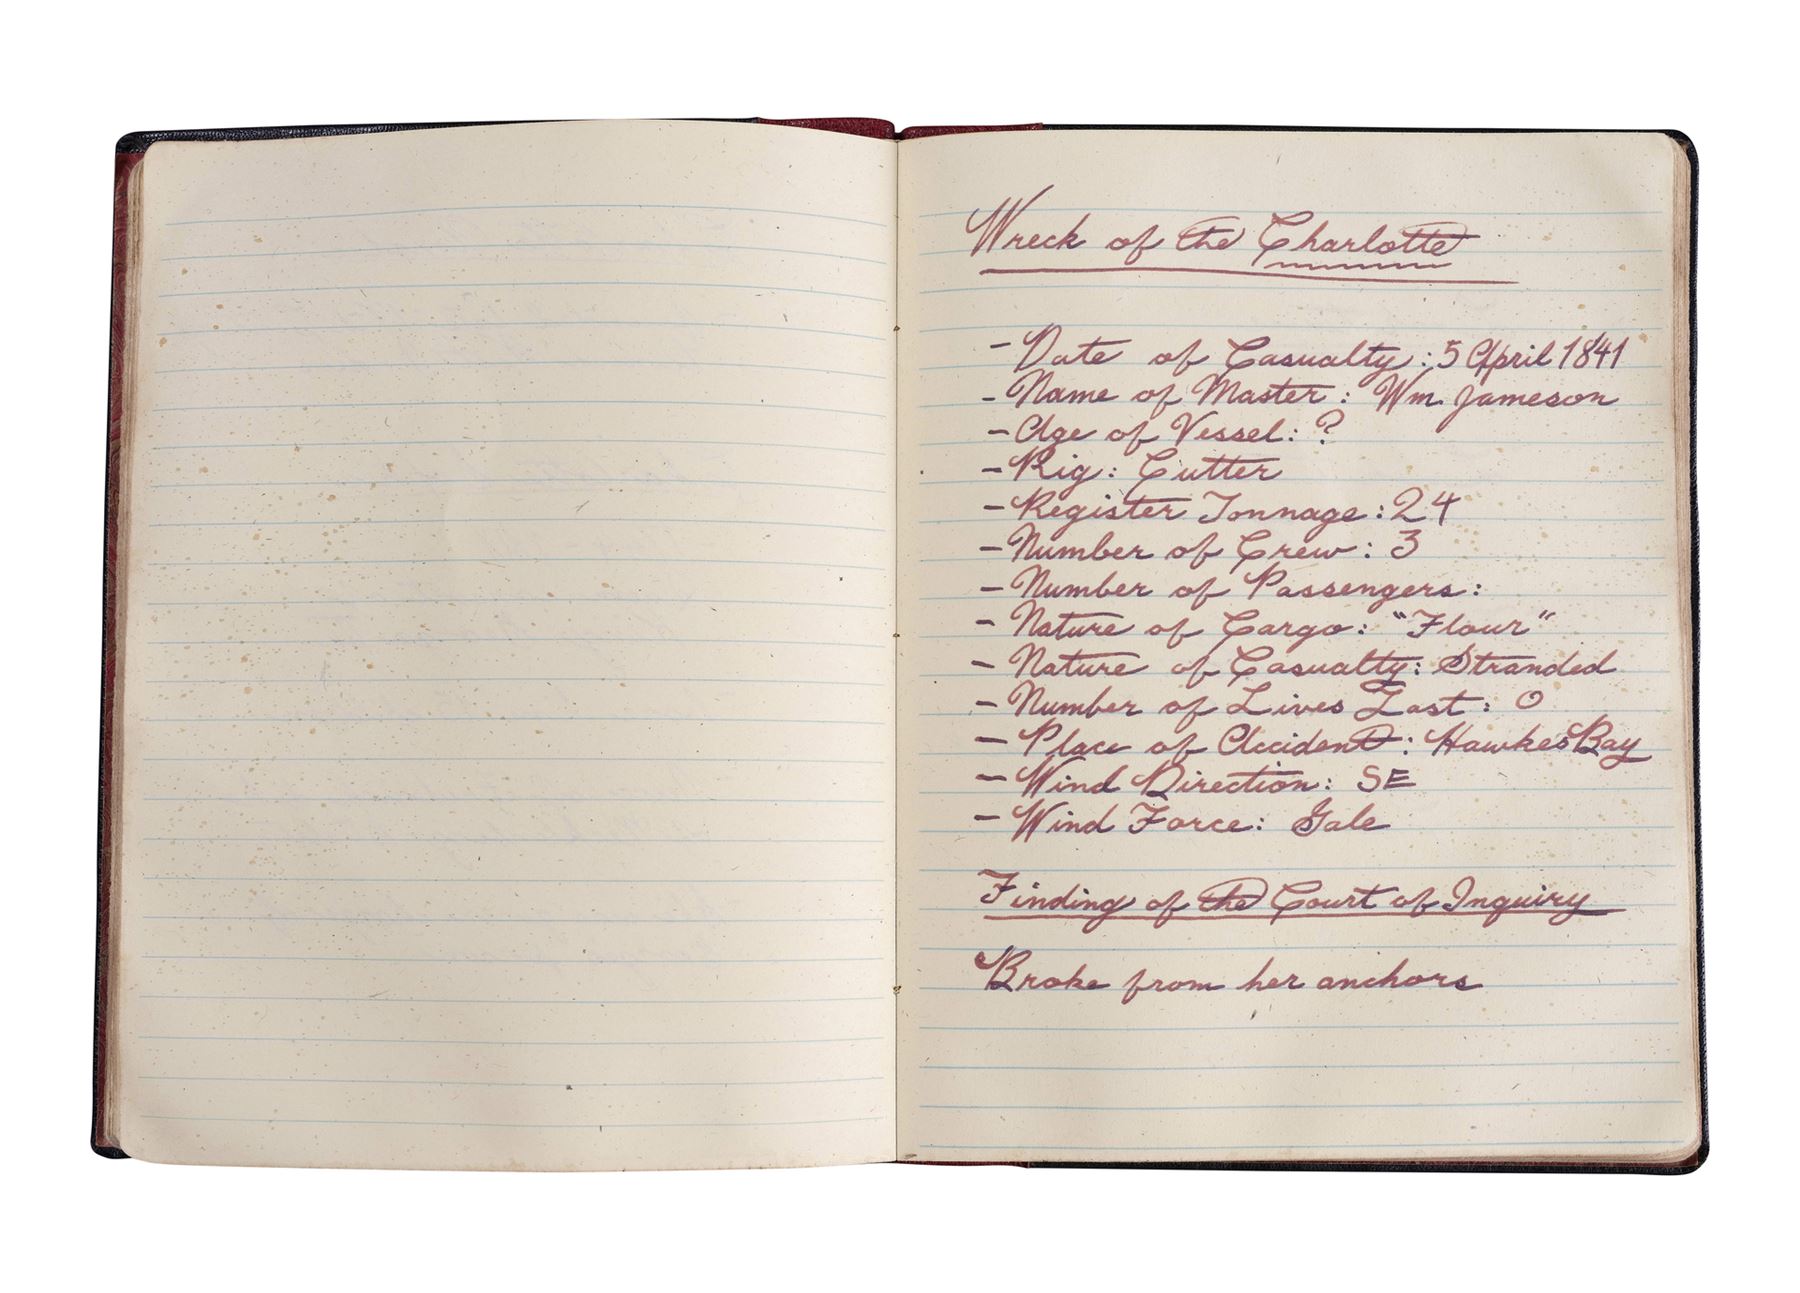 Wreck of the Charlotte
- Date of Casualty: 5 April 1841
- Name of Master: Wm. Jameson
- Age of Vessel: ?
- Rig: Cutter
- Register Tonnage: 24
- Number of Crew: 3
- Number of Passengers:
- Nature of Cargo: "Flour"
- Nature of Casualty: Stranded
- Number of Lives Lost: 0
- Place of Accident: Hawkes Bay
- Wind Direction: SE
- Wind Force: Gale
Finding of the Court of Inquiry
Broke from her anchors